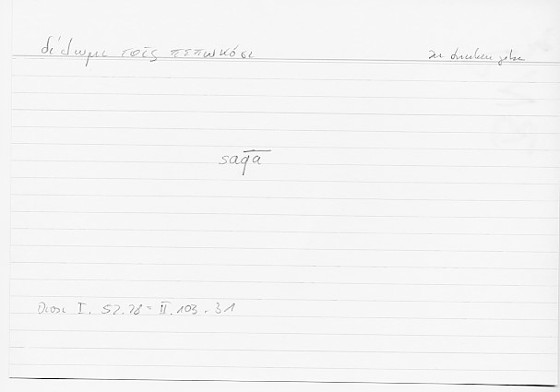 δίδωμι τοῖς πεπωκόσι zu trinken geben
saqā
Diosc I. 52.28 = II. 103.31